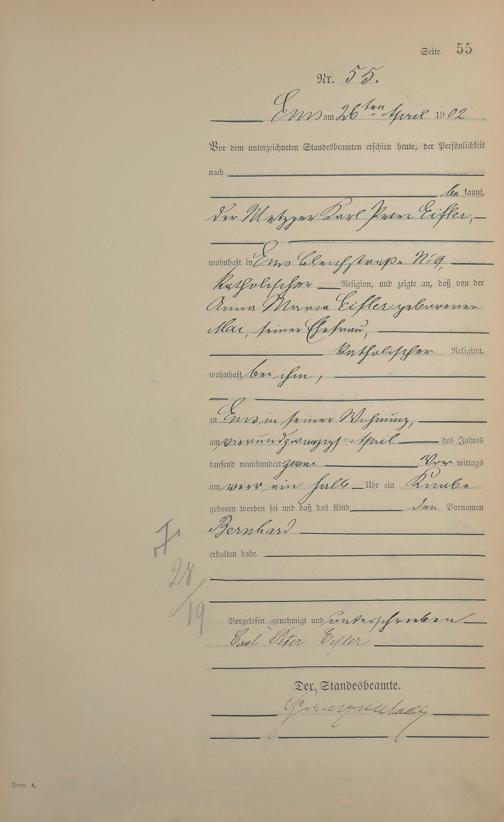 Seite 55
Nr. 55.
Ems am 26ten April 1902
Vor dem unterzeichneten Standesbeamten erschien heute, der Persönlichkeit
nach
be kannt,
der Metzger Karl Peter Eifler,
wohnhaft in Ems Bleichstraße No 9,
katholischer Religion, und zeigte an, daß von der
Anna Maria Eifler geborenen
Mai, seiner Ehefrau,
katholischer Religion,
wohnhaft bei ihm,
zu Ems in seiner Wohnung,
am vierundzwanzigst April des Jahres
tausend neunhundert zwei Vor mittags
um vier ein halb Uhr ein Knabe
geboren worden sei und daß das Kind den Vornamen
Bernhard
erhalten habe.
28
/19
Vorgelesen, genehmigt und unterschrieben
Carl Peter Eifler
Der Standesbeamte.
Form. A.